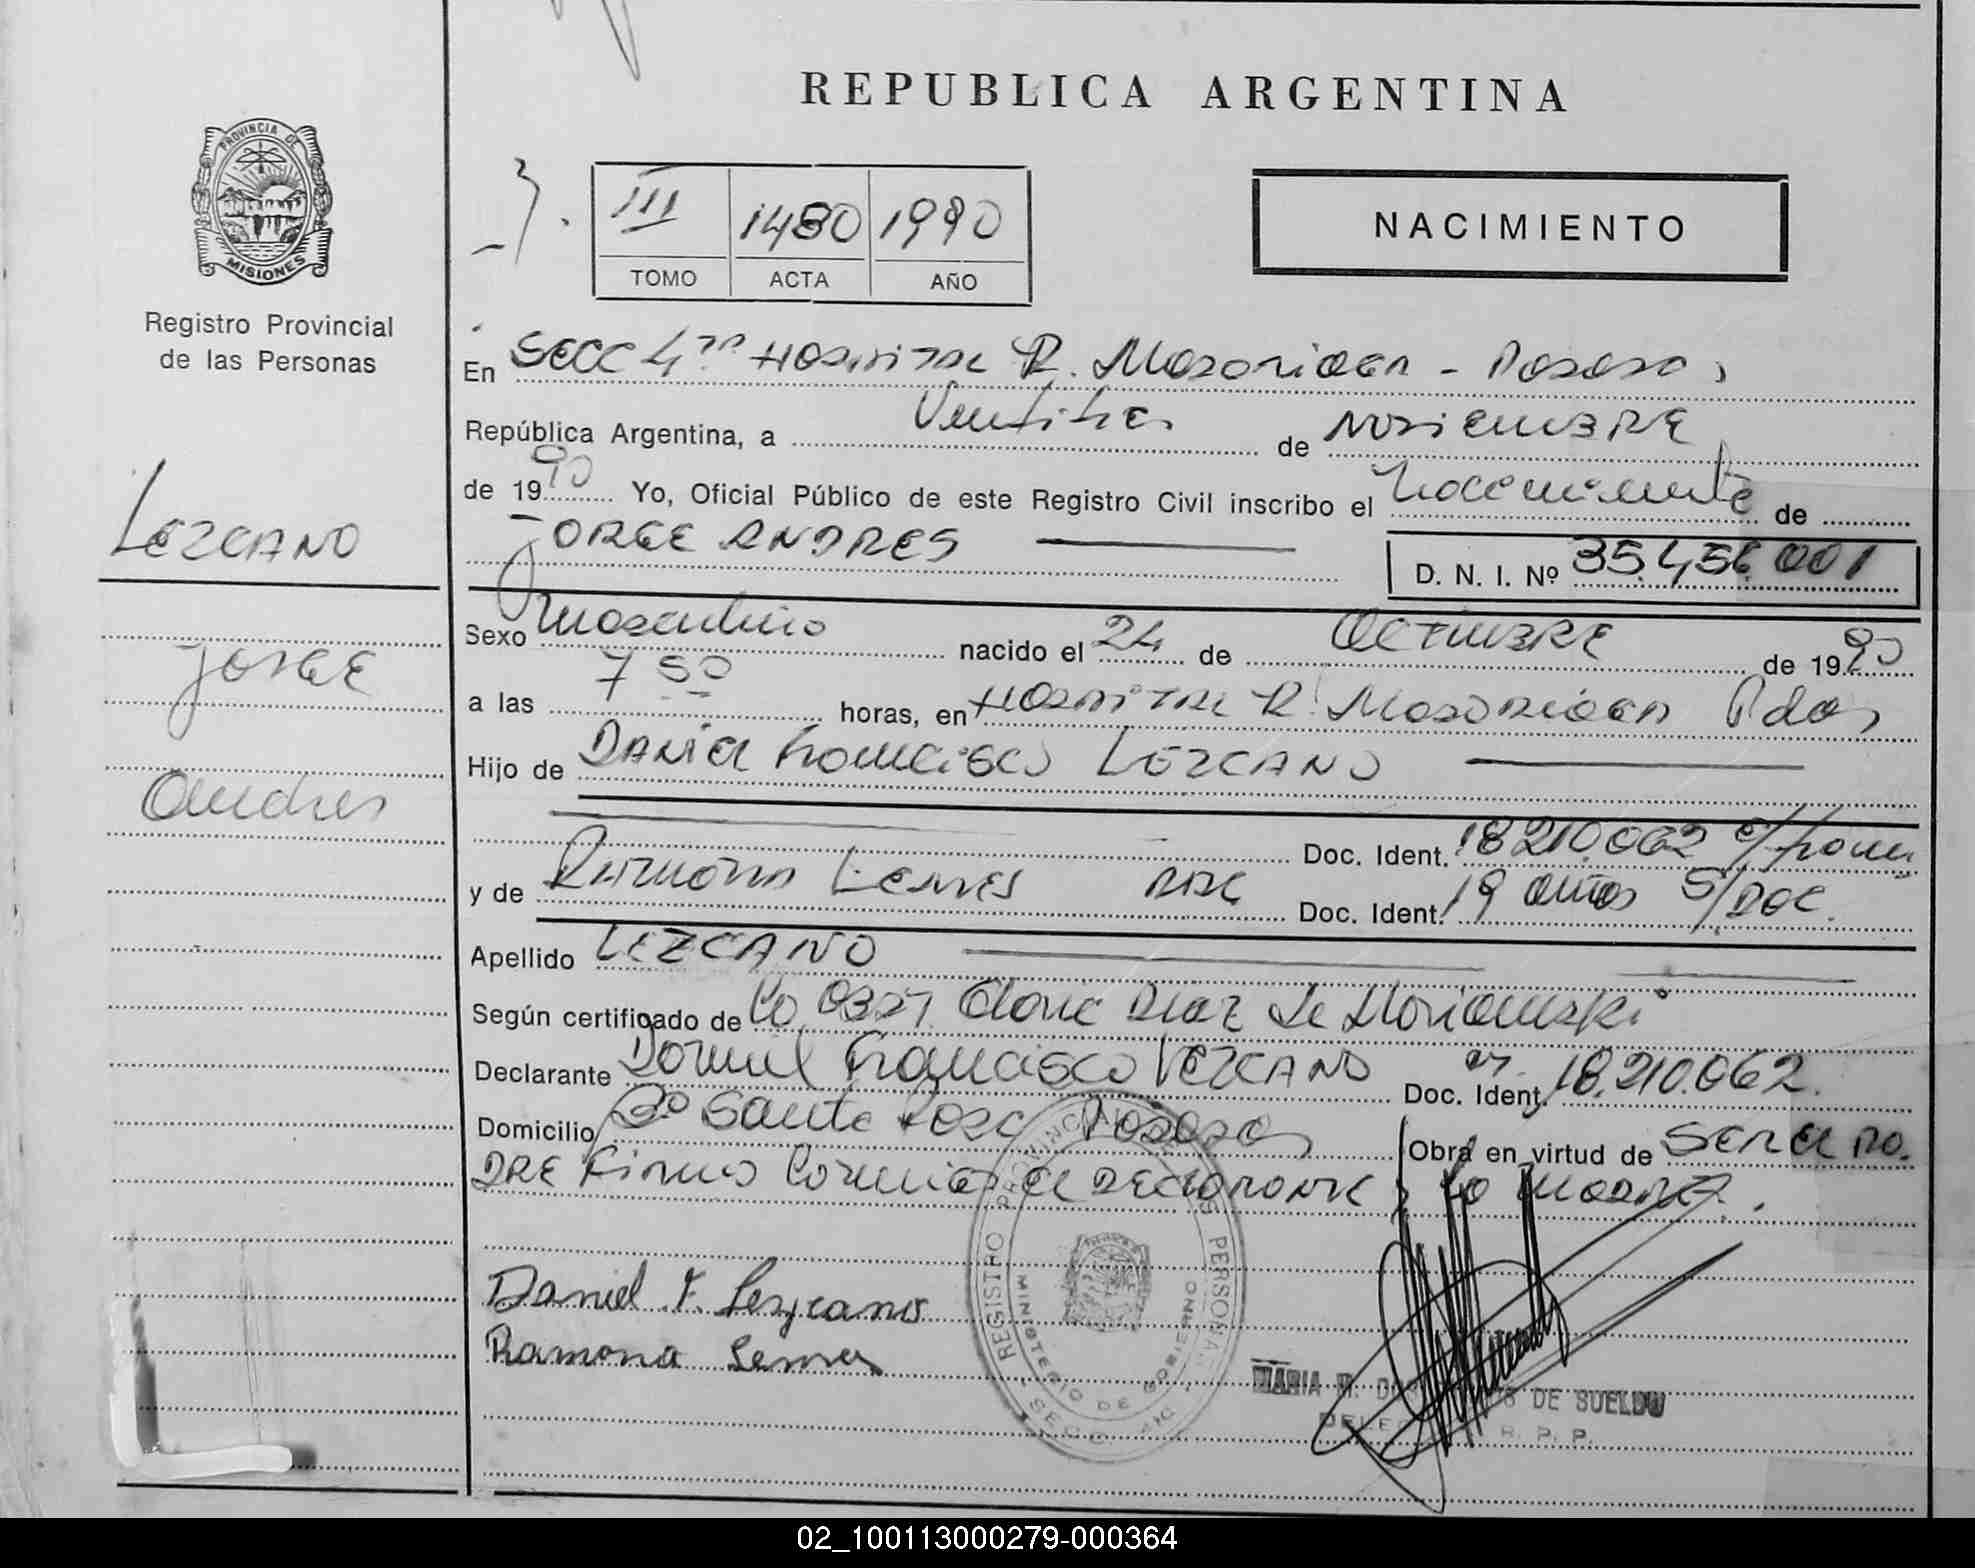 REPUBLICA ARGENTINA
PROVINCIA DE
MISIONES
Registro Provincial
de las Personas
III 1480 1990
TOMO ACTA AÑO
NACIMIENTO
En SECC 4ta HOSPITAL R. Madariaga - Posadas,
República Argentina, a Veintitres de NOVIEMBRE
de 1990 Yo, Oficial Público de este Registro Civil inscribo el nacimiento de
JORGE ANDRES
D. N. I. Nº 35.456.001
LEZCANO
JORGE
Andres
Sexo masculino nacido el 24 de OCTUBRE de 1990
a las 7 50 horas, en HOSPITAL R. Madariaga Pdas
Hijo de DANIEL Francisco LEZCANO
Doc. Ident. 18.210.062
y de RAMONA Doc. Ident. 19 años S/DOC.
Apellido LEZCANO
Según certificado de DIAZ de
Declarante Daniel Francisco LEZCANO Doc. Ident. 18.210.062.
Domicilio Bº Santa Rosa Posadas Obra en virtud de SER EL PA.
DRE Firman el DECLARANTE y la MADRE.
Daniel F. Lezcano
Ramona
REGISTRO PROVINCIAL PERSONAS
MINISTERIO DE GOBIERNO
MARIA DE SUELDO
R. P. P.
02_100113000279-000364